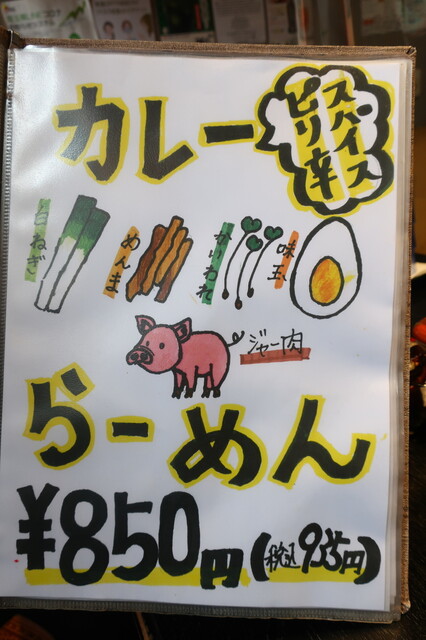 カレー
スパイス
ピリ辛
白ねぎ
めんま
かいわれ
味玉
ジャー肉
らーめん
¥850円(税込935円)